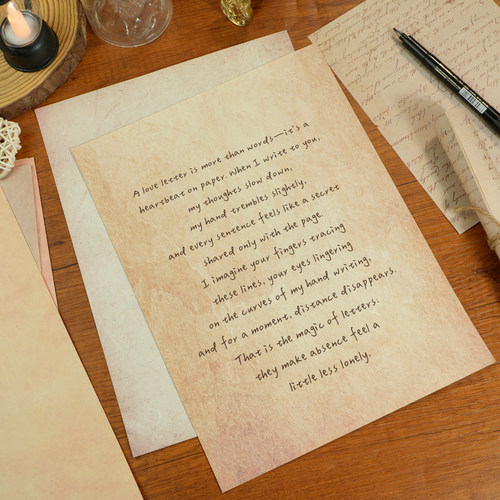 A love letter is more than words—it's a
heartbeat on paper. When I write to you,
my thoughts slow down,
my hand trembles slightly,
and every sentence feels like a secret
shared only with the page
I imagine your fingers tracing
these lines, your eyes lingering
on the curves of my hand writing,
and for a moment, distance disappears.
That is the magic of letters:
they make absence feel a
little less lonely.